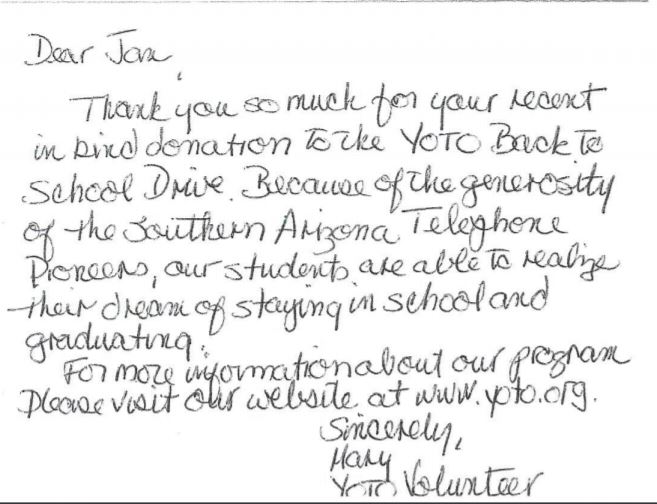 Dear Jan,
Thank you so much for your recent
in kind donation to the YOTO Back To
School Drive. Because of the generosity
of the Southern Arizona Telephone
Pioneers, our students are able to realize
their dream of staying in school and
graduating.
For more information about our program
Please visit our website at www.yoto.org.
Sincerely,
Mary
YOTO Volunteer